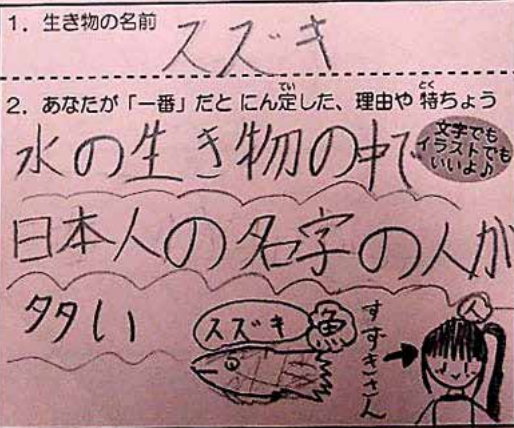 1. 生き物の名前
スズキ
2. あなたが「一番」だと にん定した、理由や 特ちょう
てい
とく
文字でも
イラストでも
いいよ♪
水の生き物の中で
日本人の名字の人が
多い
スズキ
魚
すずきさん
人